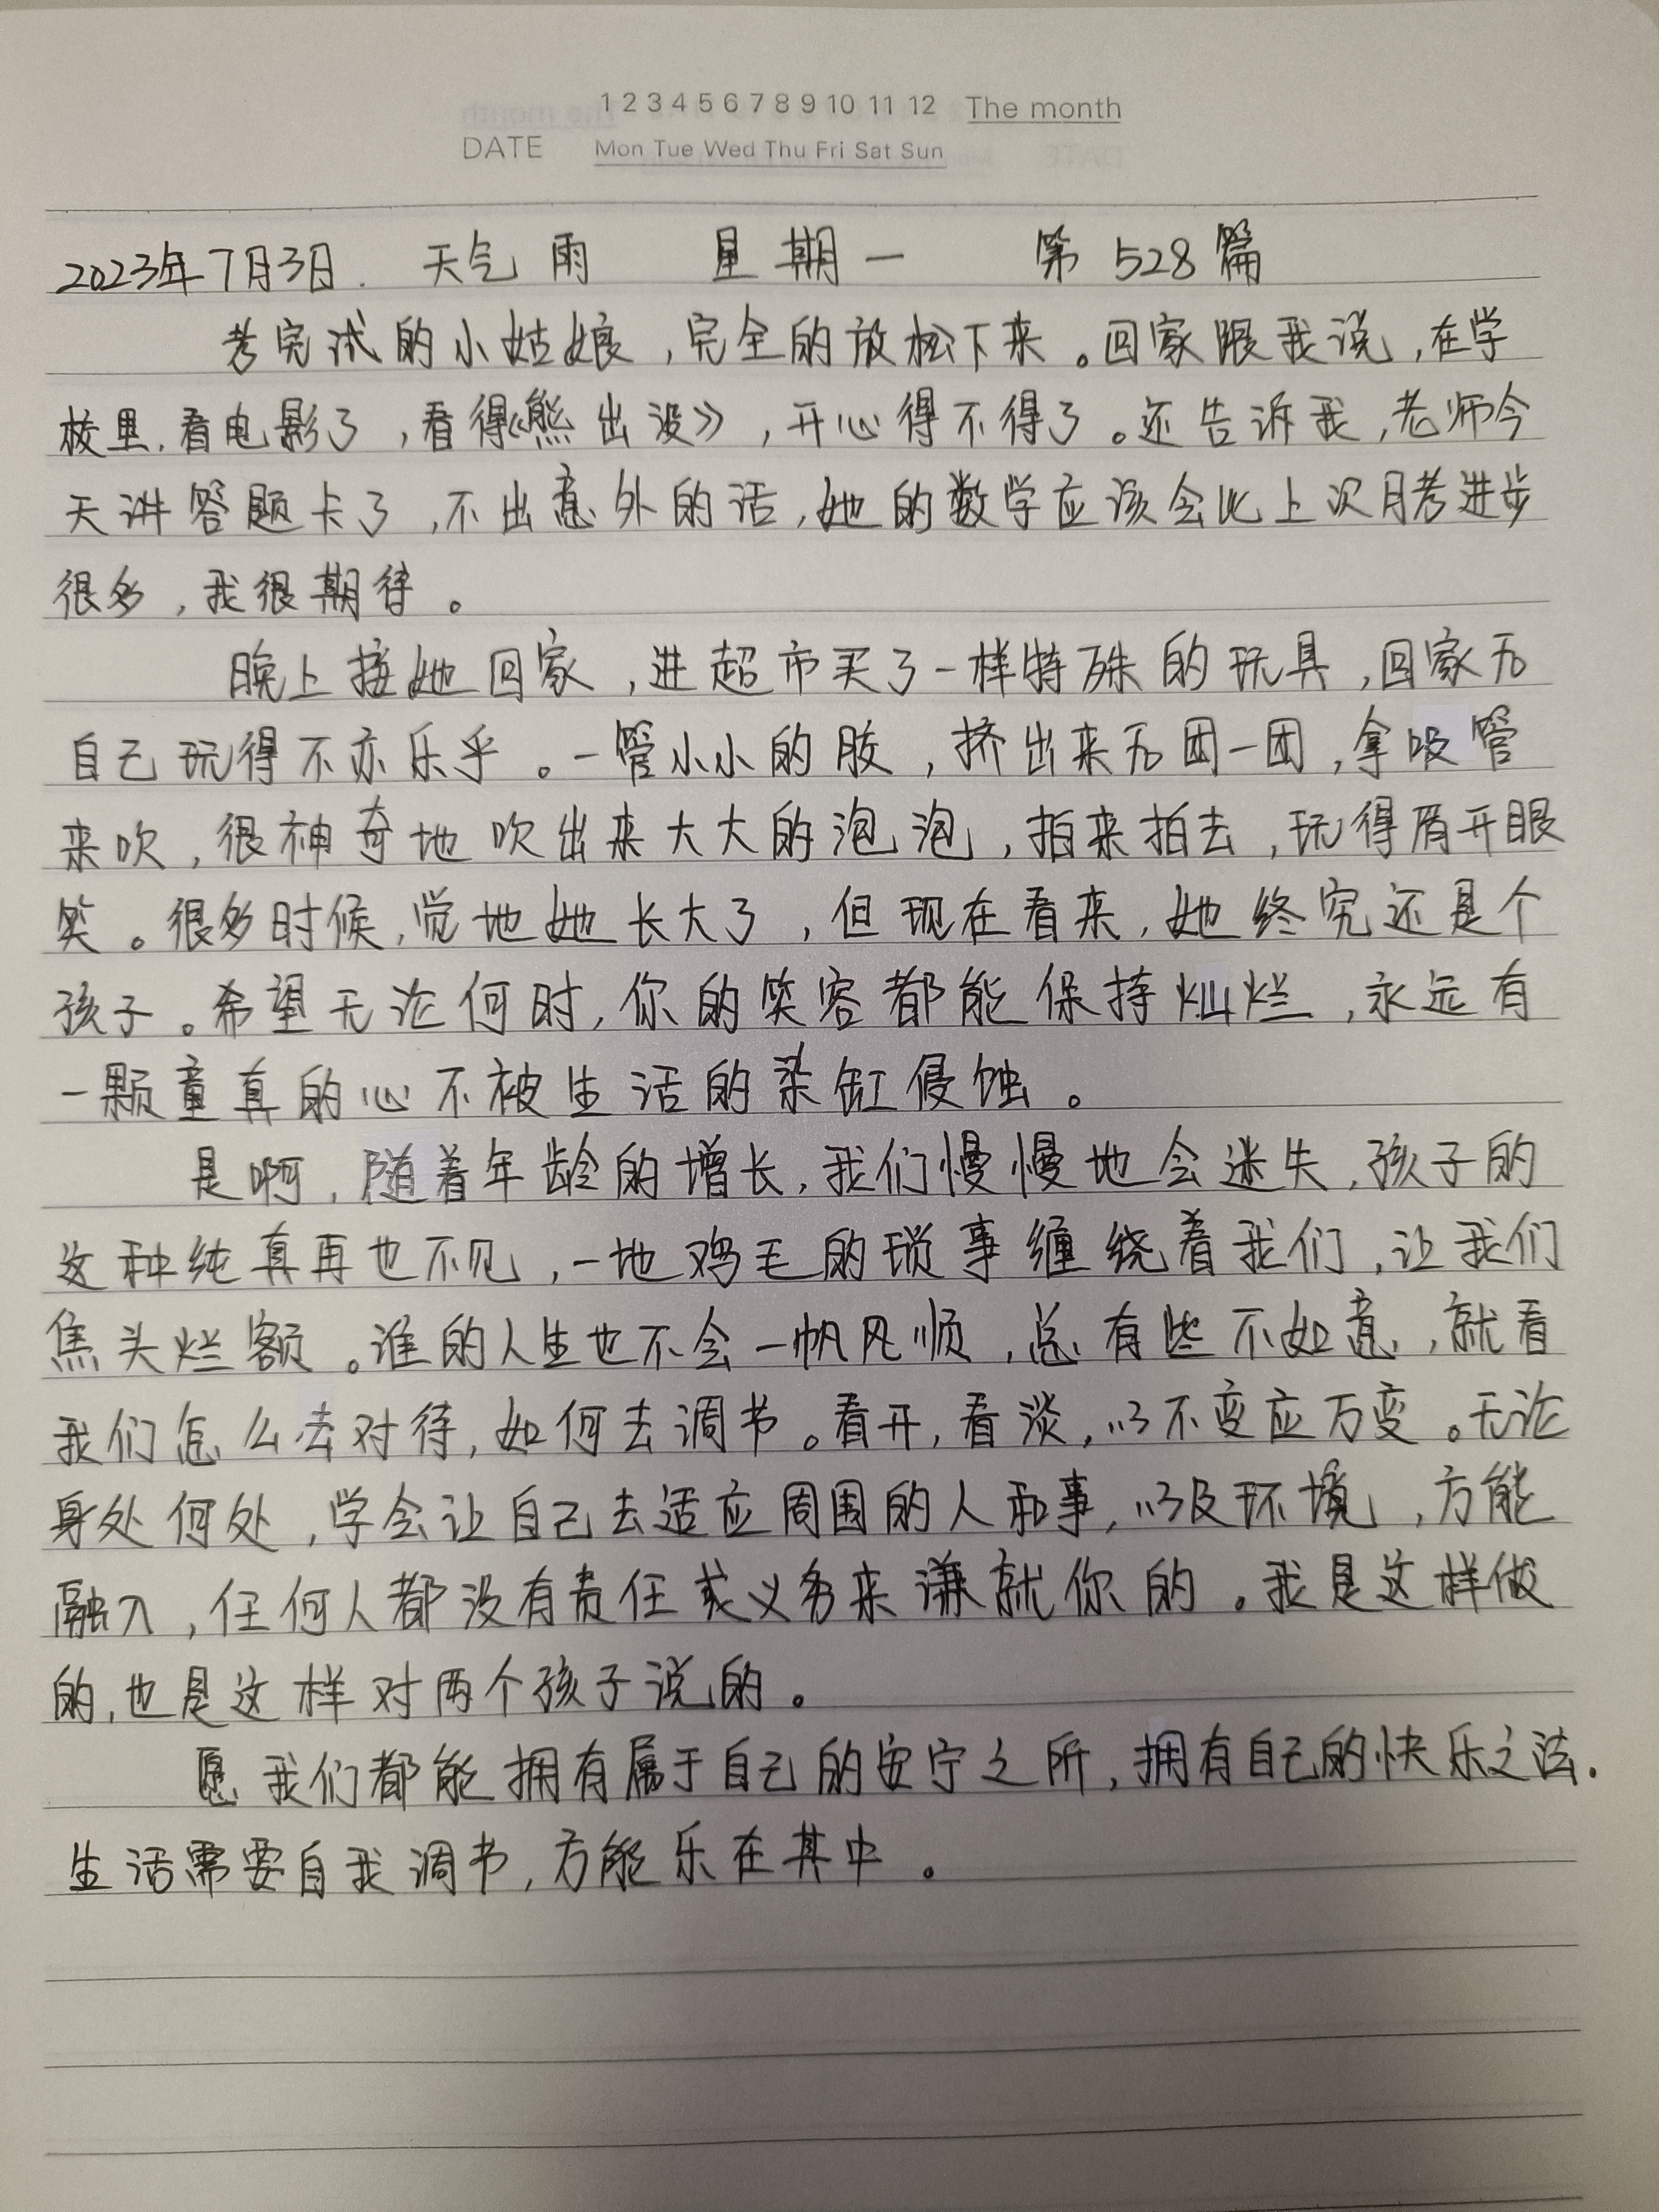 1 2 3 4 5 6 7 8 9 10 11 12 The month
DATE Mon Tue Wed Thu Fri Sat Sun
2023年7月3日. 天气 雨 星期一 第528篇
考完试的小姑娘,完全的放松下来。回家跟我说,在学
校里,看电影了,看得《熊出没》,开心得不得了。还告诉我,老师今
天讲答题卡了,不出意外的话,她的数学应该会比上次月考进步
很多,我很期待。
晚上接她回家,进超市买了一样特殊的玩具,回家后
自己玩得不亦乐乎。一管小小的胶,挤出来后团一团,拿吸管
来吹,很神奇地吹出来大大的泡泡,拍来拍去,玩得眉开眼
笑。很多时候,觉地她长大了,但现在看来,她终究还是个
孩子。希望无论何时,你的笑容都能保持灿烂,永远有
一颗童真的心不被生活的染缸侵蚀。
是啊,随着年龄的增长,我们慢慢地会迷失,孩子的
这种纯真再也不见,一地鸡毛的琐事缠绕着我们,让我们
焦头烂额。谁的人生也不会一帆风顺,总有些不如意,就看
我们怎么去对待,如何去调节。看开,看淡,以不变应万变。无论
身处何处,学会让自己去适应周围的人和事,以及环境,方能
融入,任何人都没有责任或义务来谦就你的。我是这样做
的,也是这样对两个孩子说的。
愿我们都能拥有属于自己的安宁之所,拥有自己的快乐之法.
生活需要自我调节,方能乐在其中。